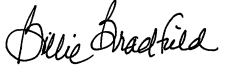 Billie Bradfield